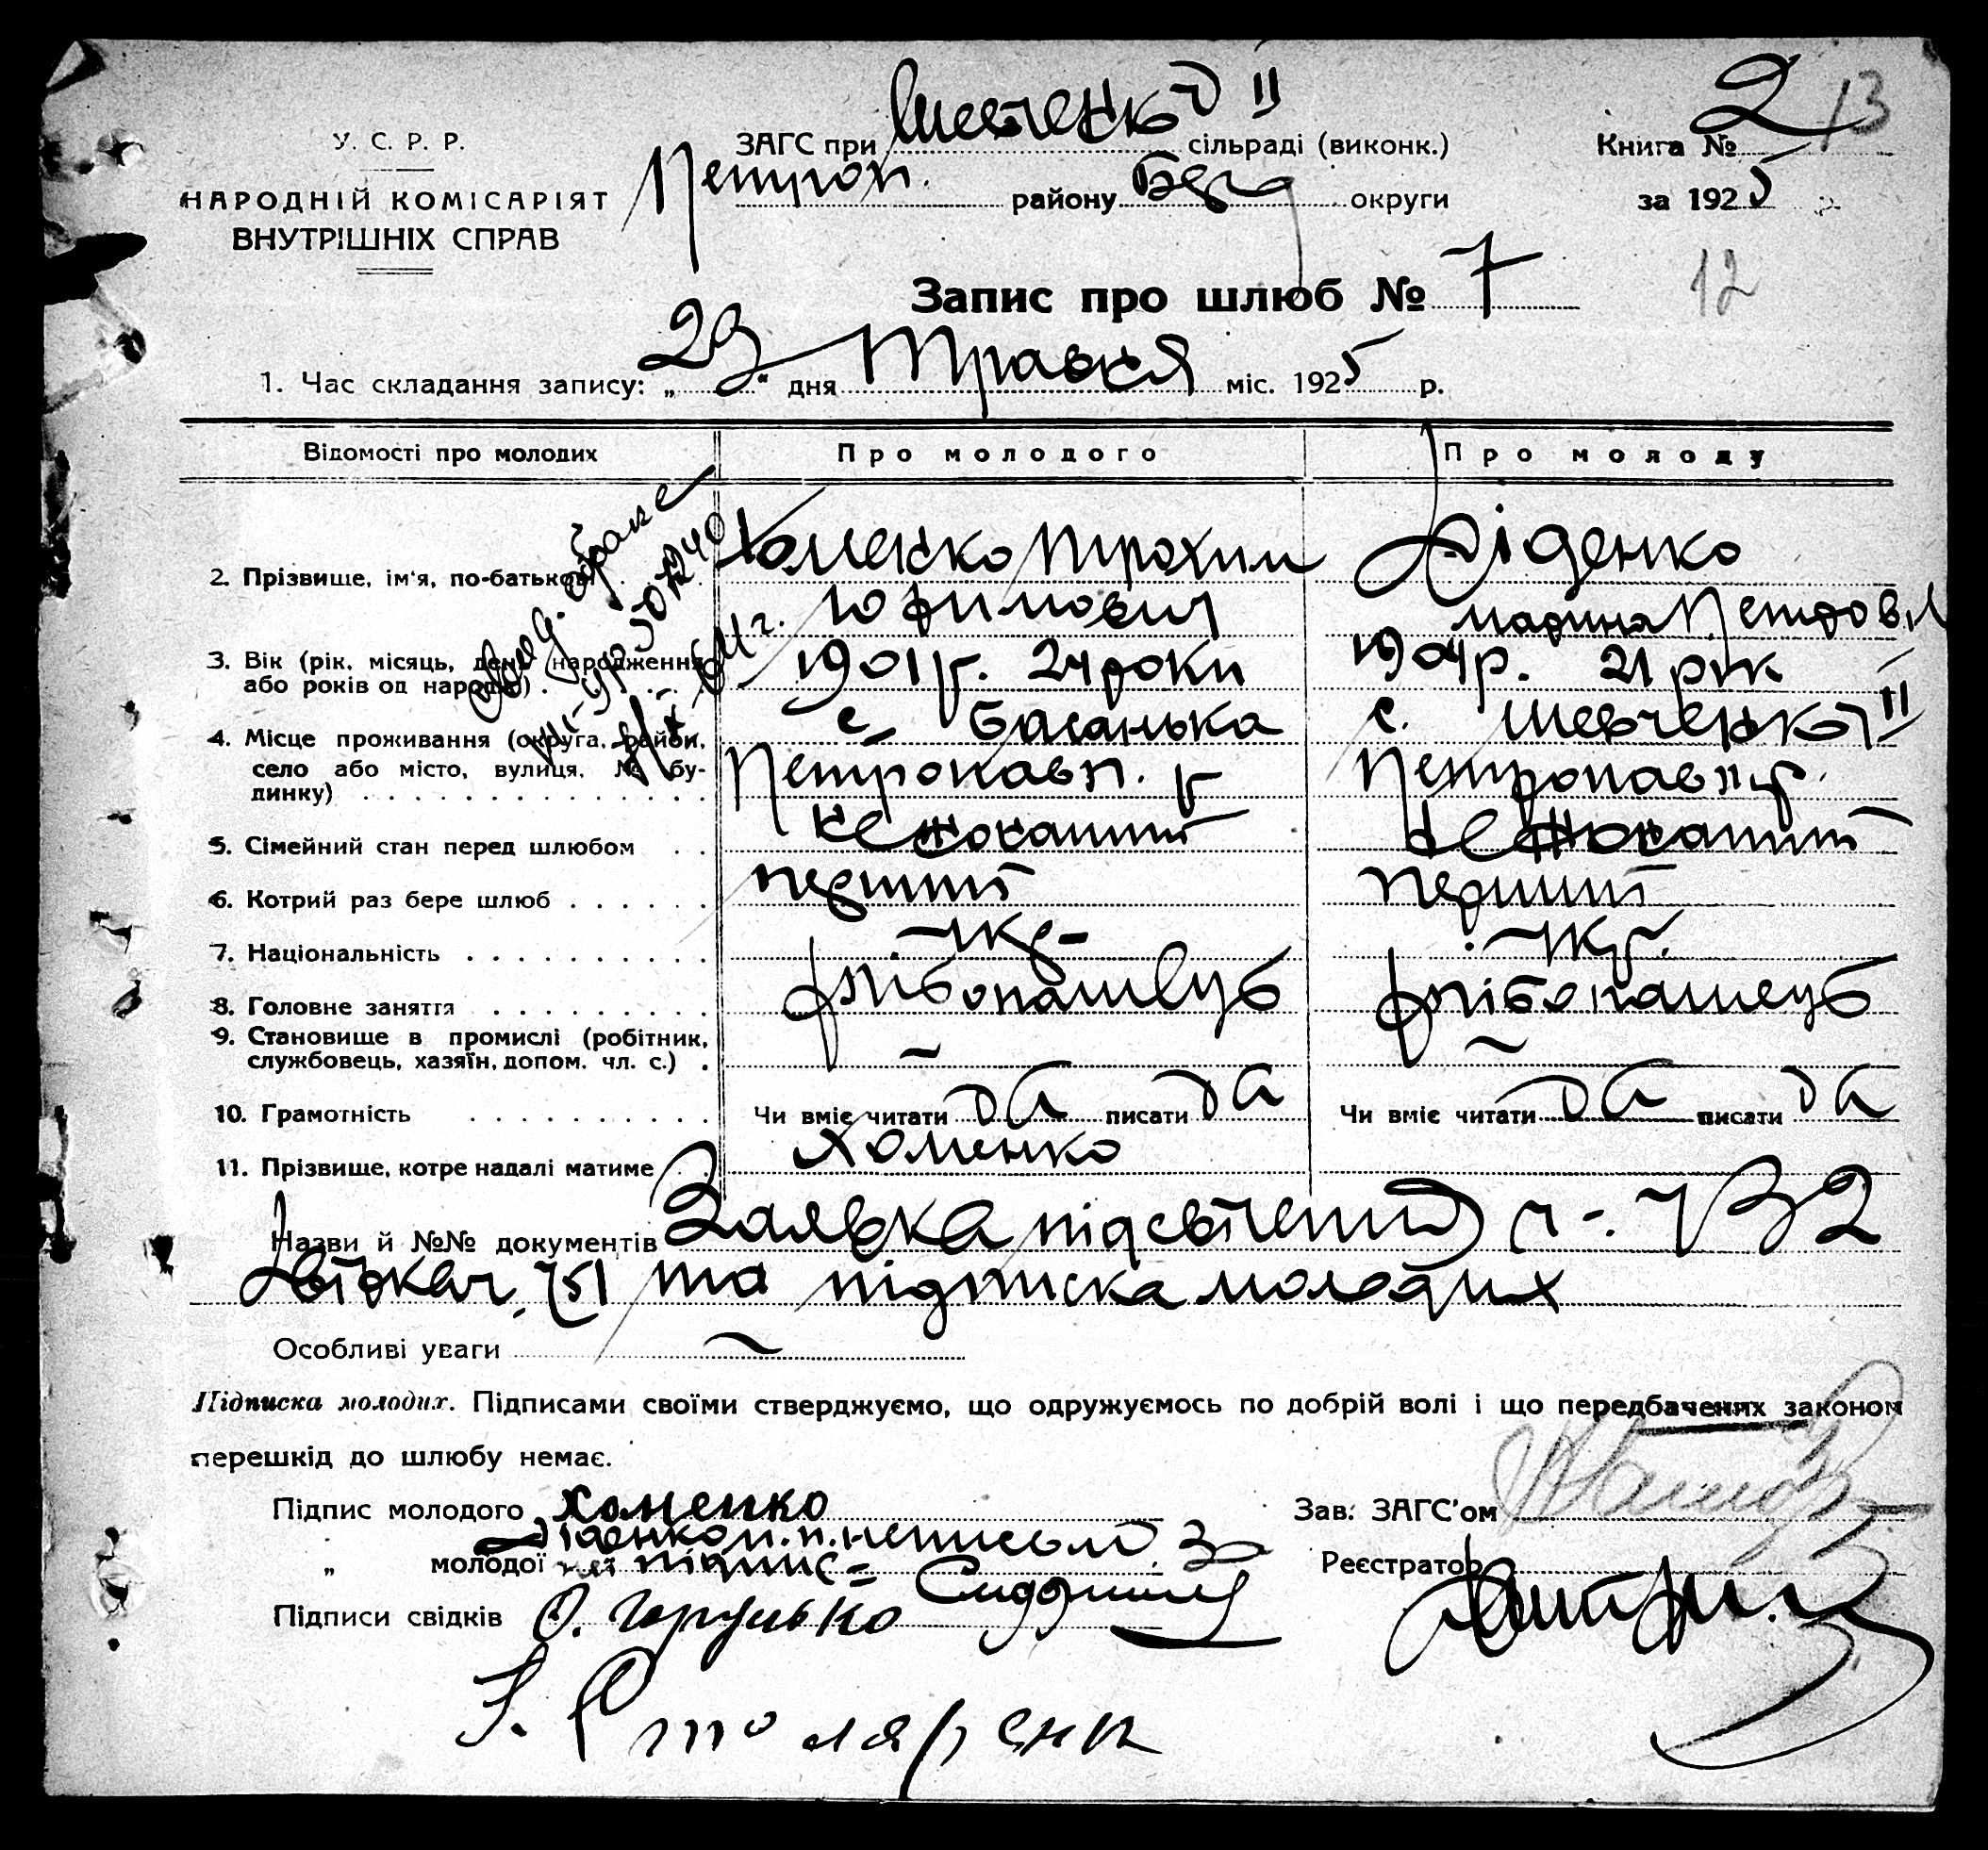 У. С. Р. Р.
НАРОДНІЙ КОМІСАРІЯТ
ВНУТРІШНІХ СПРАВ
ЗАГС при Шевченко II сільраді (виконк.)
Петроп. району округи
Книга № 2 13
за 1925 р.
12
Запис про шлюб № 7
1. Час складання запису: „29“ дня Травня міс. 1925 р.
Відомості про молодих Про молодого Про молоду
2. Прізвище, ім'я, по-батькові Хоменко Трохим Діденко
Юхимович Марина Петров.
3. Вік (рік, місяць, день народження 1901 р. 24 роки 1904 р. 21 рік
або років од народж.)
4. Місце проживання (округа, район, с. Басанька с. Шевченко II
село або місто, вулиця, № бу- Петропавл. р Петропавл р.
динку)
5. Сімейний стан перед шлюбом нежонатий нежонатий
6. Котрий раз бере шлюб перший перший
7. Національність Укр- Укр.
8. Головне заняття хлібопашець хлібопашець
9. Становище в промислі (робітник, – –
службовець, хазяїн, допом. чл. с.)
10. Грамотність Чи вміє читати да писати да Чи вміє читати да писати да
11. Прізвище, котре надалі матиме Хоменко
Назви й №№ документів Заявка 732
751 та підписка молодих
Особливі уваги –
Підписка молодих. Підписами своїми стверджуємо, що одружуємось по добрій волі і що передбачених законом
перешкід до шлюбу немає.
Підпис молодого Хоменко Зав. ЗАГС'ом
Діденко м. п. неписьм. За
„ молодої неї підпис= Реєстратор
Підписи свідків